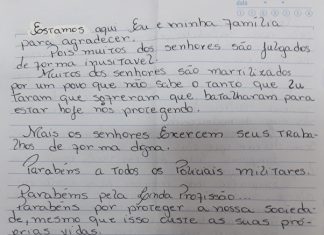 Estamos aqui Eu e minha família
para agradecer.
Pois muitos dos senhores são julgados
de forma injustavel.
Muitos dos senhores são martilizados
por um povo que não sabe o tanto que lu
taram que sofreram que batalharam para
estar hoje nos protegendo.
Mais os senhores Exercem seus traba-
lhos de forma digna.
Parabéns a todos os Policiais militares.
Parabéns pela linda Profissão...
Parabéns por proteger a nossa socieda-
de, mesmo que isso custe as suas pró-
prias vidas.